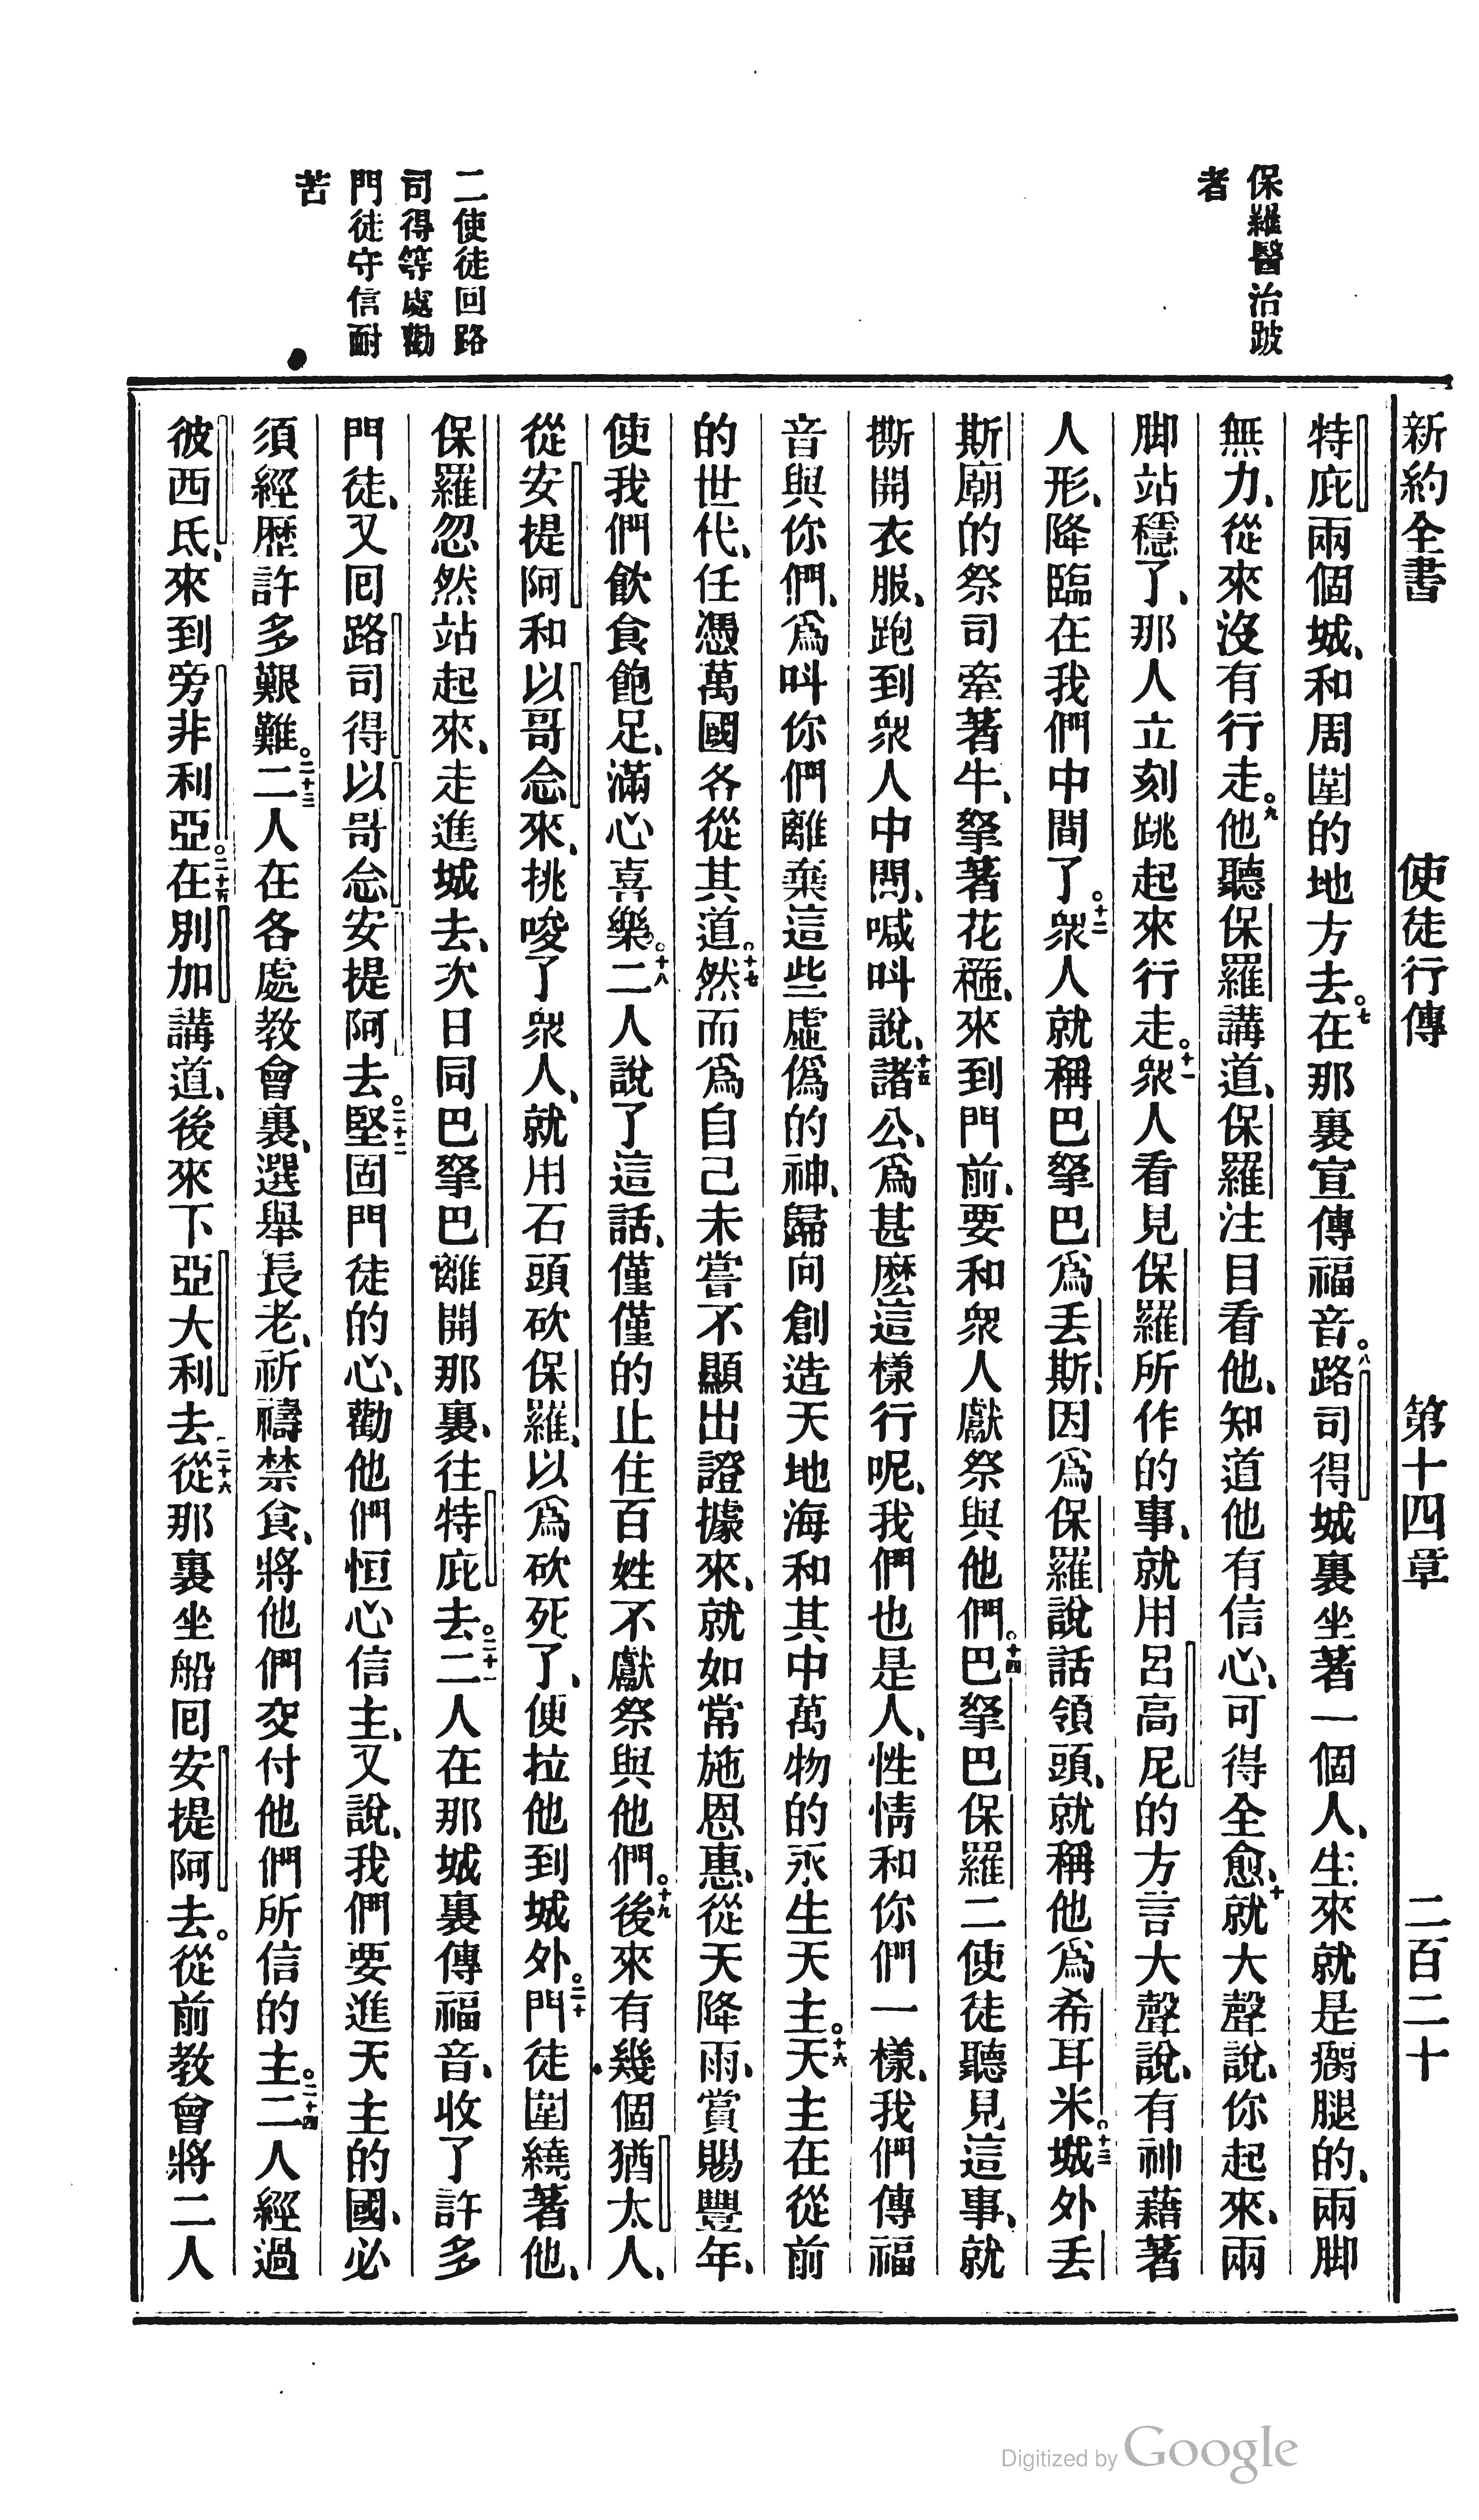 新約全書　使徒行傳　第十四章　二百二十
保羅醫治跛
者
二使徒回路
司得等處勸
門徒守信耐
苦
特庇兩個城、和周圍的地方去。七在那裏宣傳福音。八路司得城裏坐著一個人、生來就是瘸腿的、兩脚
無力、從來沒有行走。九他聽保羅講道、保羅注目看他、知道他有信心、可得全愈、十就大聲說、你起來、兩
脚站穩了、那人立刻跳起來行走。十一衆人看見保羅所作的事、就用呂高尼的方言大聲說、有神藉著
人形、降臨在我們中間了。十二衆人就稱巴拏巴爲丟斯、因爲保羅說話領頭、就稱他爲希耳米。十三城外丟
斯廟的祭司牽著牛、拏著花䙝、來到門前、要和衆人獻祭與他們。十四巴拏巴保羅二使徒聽見這事、就
撕開衣服、跑到衆人中間、喊叫說、十五諸公、爲甚麽這樣行呢、我們也是人、性情和你們一樣、我們傳福
音與你們、爲叫你們離棄這些虛僞的神、歸向創造天地海和其中萬物的永生天主。十六天主在從前
的世代、任憑萬國各從其道。十七然而爲自己未嘗不顯出證據來、就如常施恩惠、從天降雨、賞賜豐年、
使我們飮食飽足、滿心喜樂。十八二人說了這話、僅僅的止住百姓不獻祭與他們。十九後來有幾個猶太人、
從安提阿和以哥念來、挑唆了衆人、就用石頭砍保羅、以爲砍死了、便拉他到城外。二十門徒圍繞著他、
保羅忽然站起來、走進城去、次日同巴拏巴離開那裏、往特庇去。二十一二人在那城裏傳福音、收了許多
門徒、又囘路司得以哥念安提阿去。二十二堅固門徒的心、勸他們恒心信主、又說、我們要進天主的國、必
須經歷許多艱難。二十三二人在各處敎會裏、選舉長老、祈禱禁食、將他們交付他們所信的主。二十四二人經過
彼西氐、來到旁非利亞。二十五在別加講道、後來下亞大利去。二十六從那裏坐船囘安提阿去。從前敎會將二人
Digitized by Google